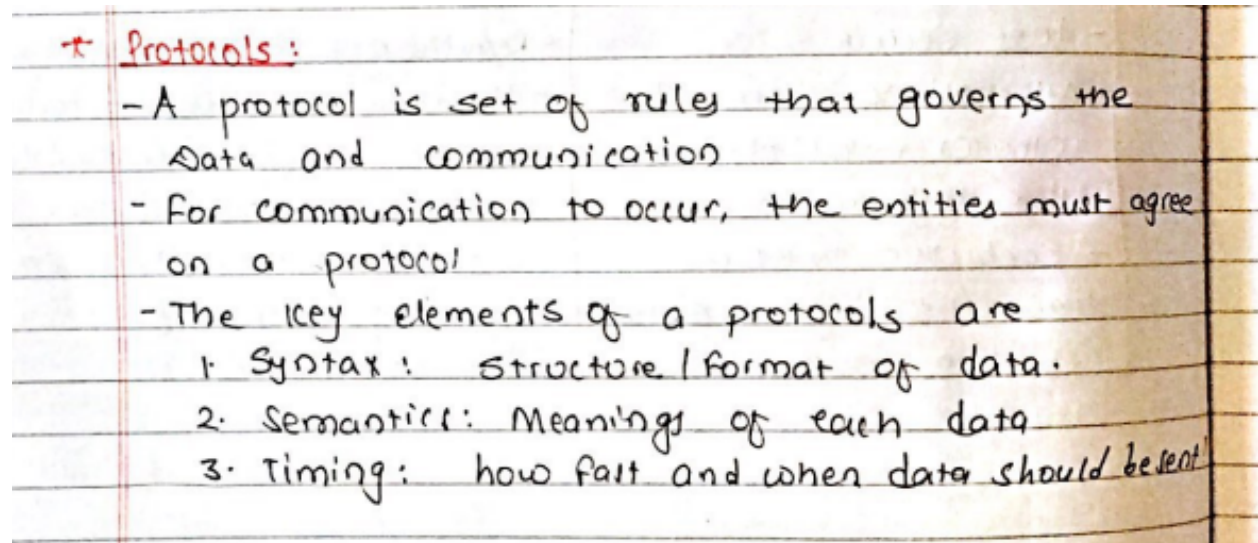 * Protocols :
- A protocol is set of rules that governs the
Data and communication
- For communication to occur, the entities must agree
on a protocol
- The key elements of a protocols are
1. Syntax : Structure / format of data.
2. Semantics : Meanings of each data
3. Timing : how fast and when data should be sent